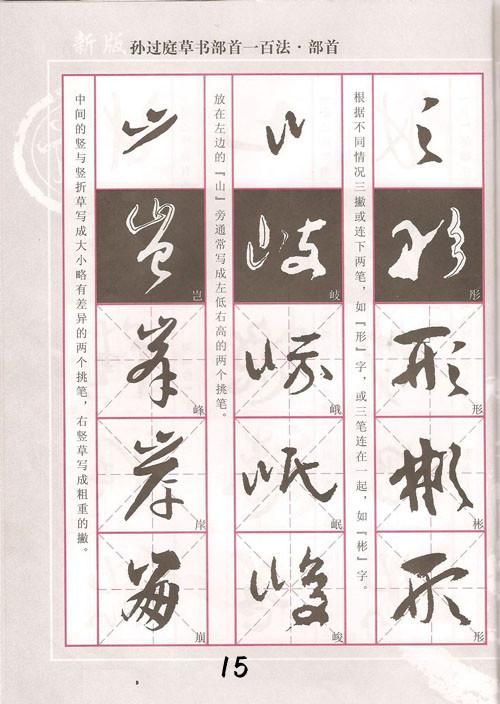 新版 孙过庭草书部首一百法·部首
根据不同情况三撇或连下两笔，如『形』字，或三笔连在一起，如『彬』字。
彤
形
彬
形
放在左边的『山』旁通常写成左低右高的两个挑笔。
岐
峨
岷
峻
中间的竖与竖折草写成大小略有差异的两个挑笔，右竖草写成粗重的撇。
岂
峰
岸
崩
15